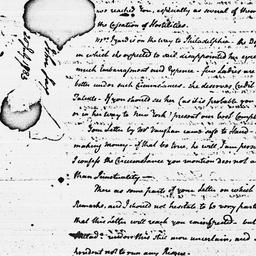 reached You, especially as several of them
the Cessation of Hostilities.
Mrs. Izard is on the way to Philadelphia – the D
in which she expected to sail, disappointed her, exp
much Embarrassment and Expence – few Ladies are
better under such Circumstances – she deserves Credit
Talents – If you should see her (as it is probable you
or in her way to New York) present our best Compli
Your Letter by Mr. Vaughan came safe to Hand
making Money – if that be true, he will I am persu
I confess the Circumstance you mention does not a
than Punctuality –
There are some parts of your Letter on which
Remarks, and I should not hesitate to be very parti
that this Letter will reach you uninspected – but
this this uncertain, and
prudent not to run any Risque –
John Jay
1783